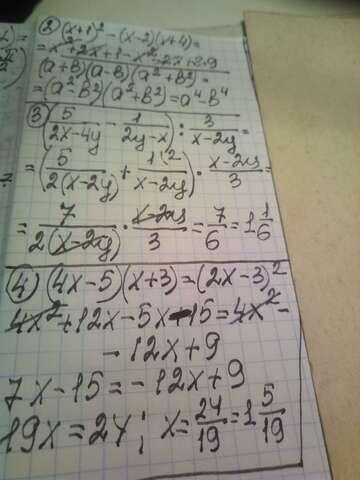 2) (x+1)² - (x-2)(x+4) =
= x² + 2x + 1 - x² - 2x + 8 = 9
(a+b)(a-b)(a²+b²) =
= (a²-b²)(a²+b²) = a⁴-b⁴
3) (5/(2x-4y) - 1/(2y-x)) : 3/(x-2y) =
= (5/(2(x-2y)) + 1\2/(x-2y)) · (x-2y)/3 =
= 7/(2(x-2y)) · (x-2y)/3 = 7/6 = 1 1/6
4) (4x-5)(x+3) = (2x-3)²
4x² + 12x - 5x - 15 = 4x² -
- 12x + 9
7x - 15 = - 12x + 9
19x = 24; x = 24/19 = 1 5/19